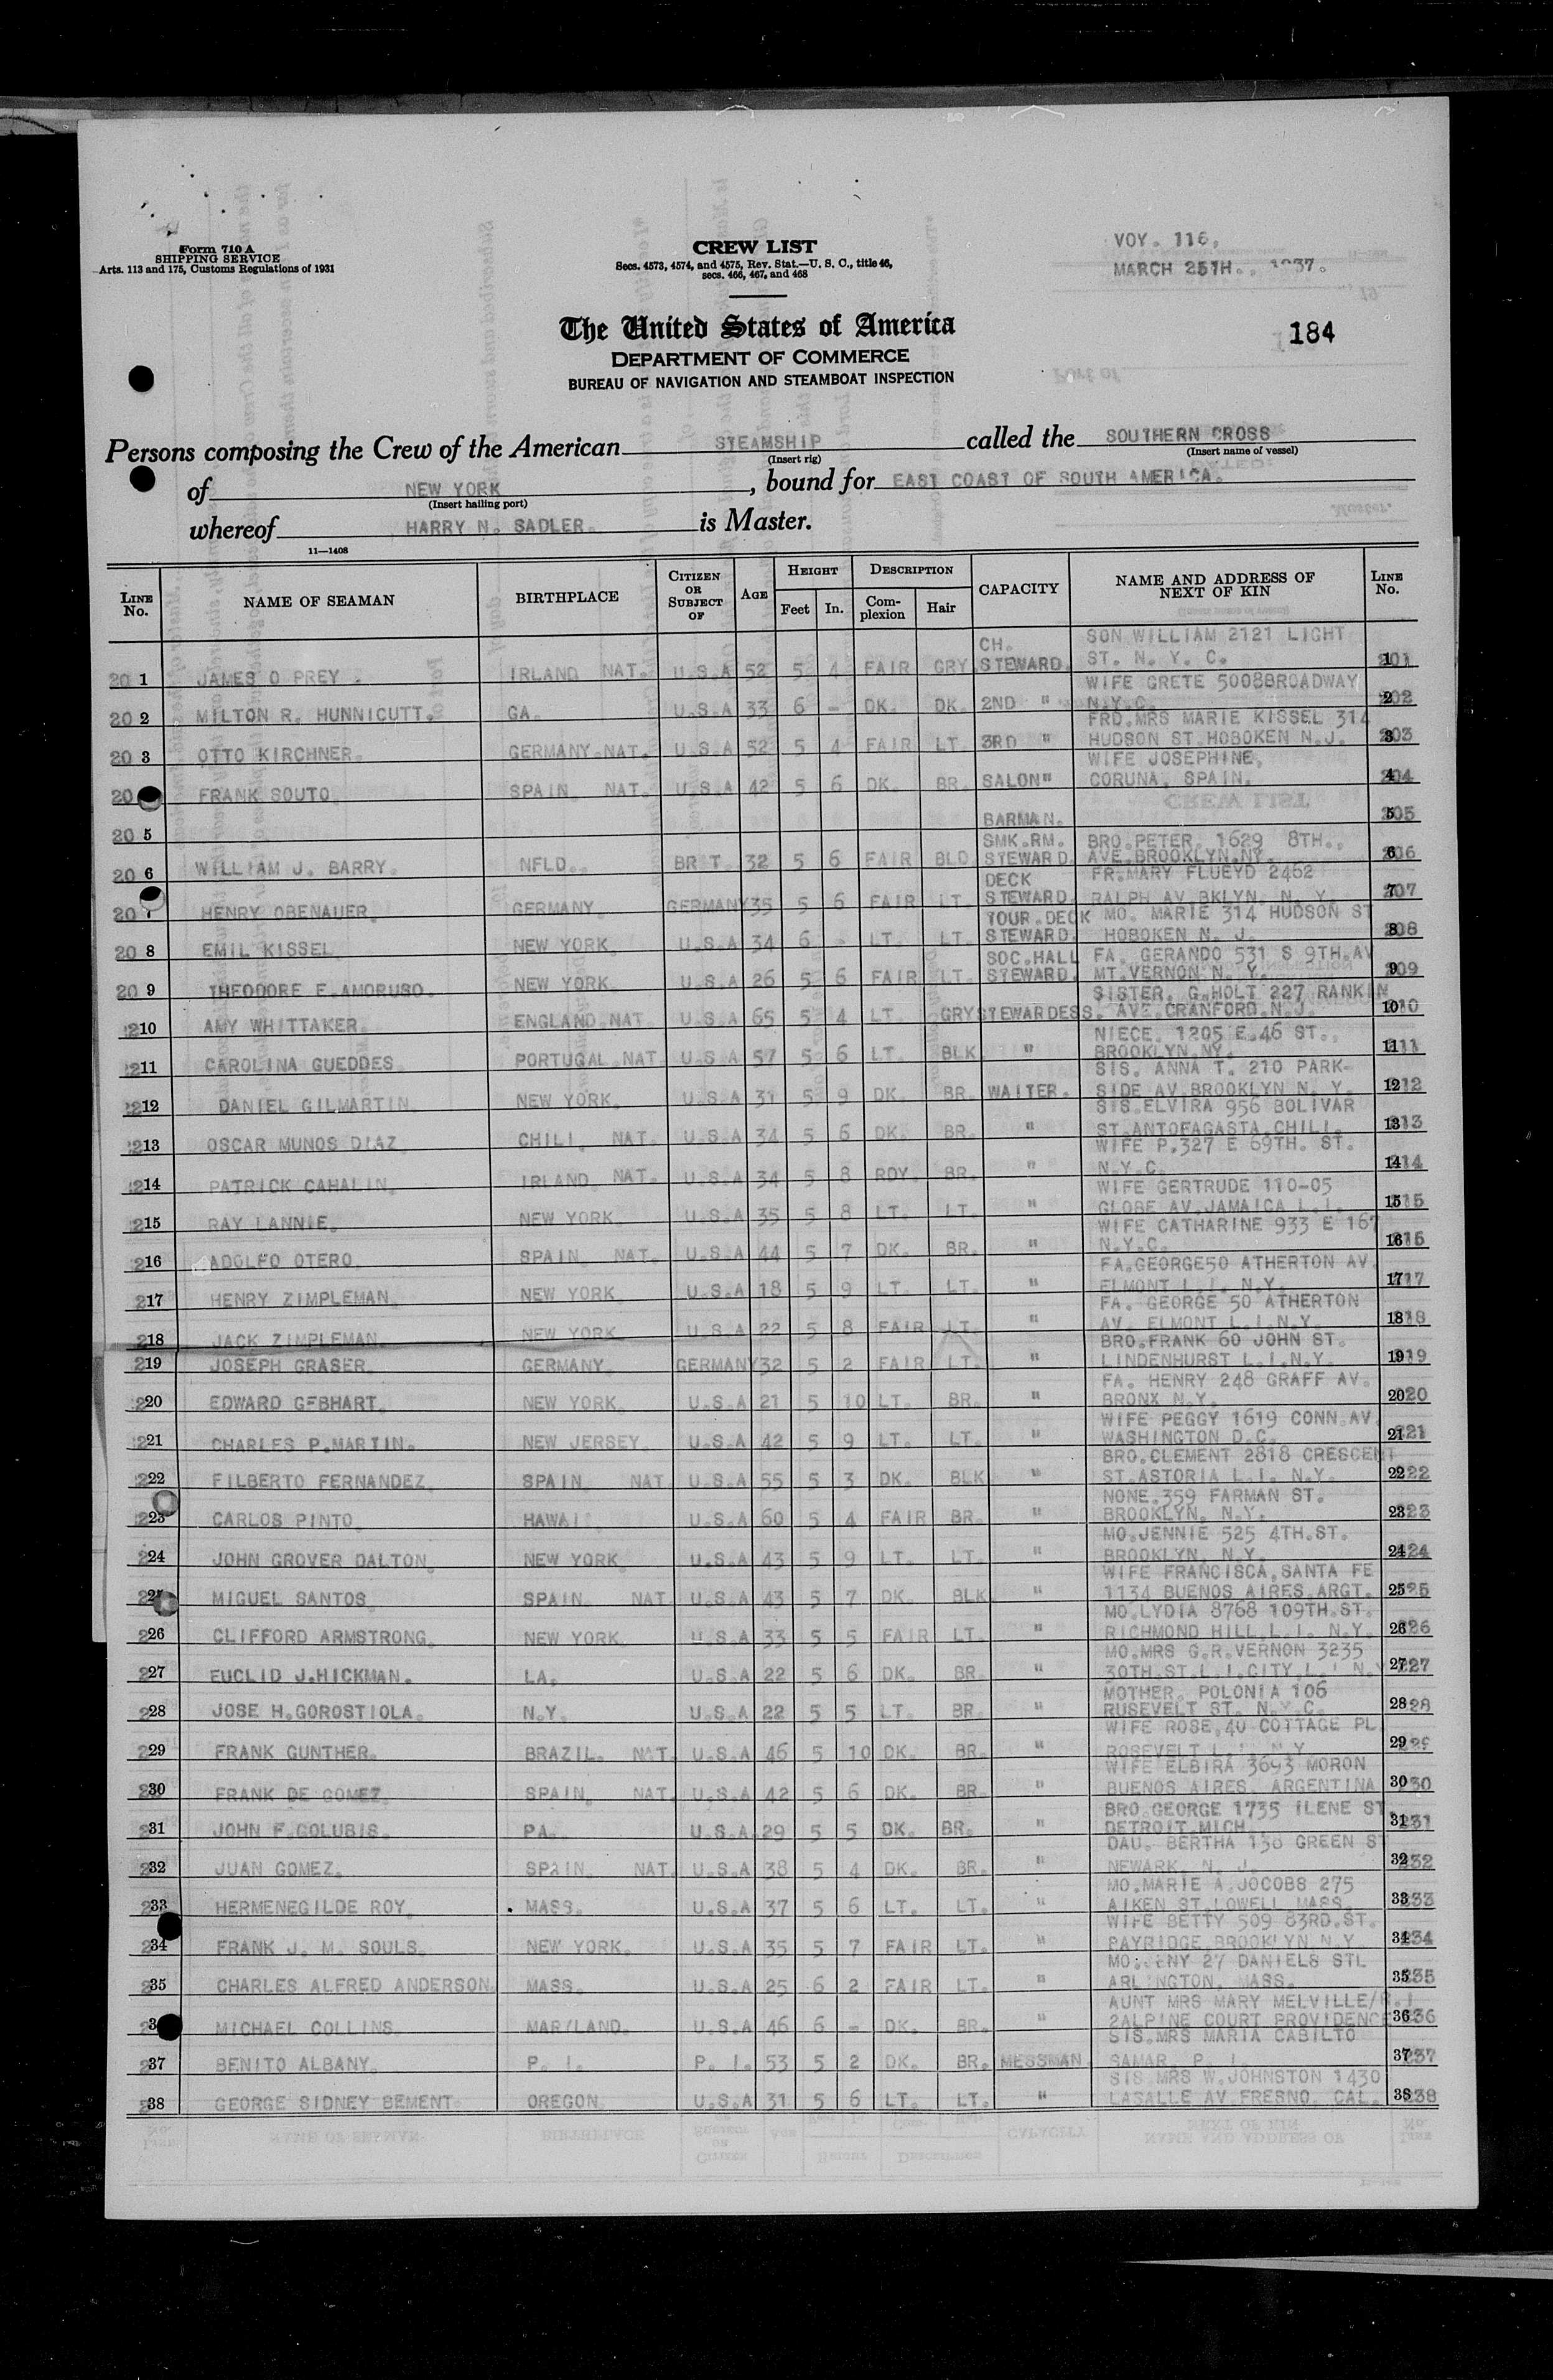 Form 710 A
SHIPPING SERVICE
Arts. 113 and 175, Customs Regulations of 1931
CREW LIST
Secs. 4573, 4574, and 4575, Rev. Stat.—U. S. C., title 46,
secs. 466, 467, and 468
VOY. 116,
MARCH 25TH., 1937.
The United States of America
DEPARTMENT OF COMMERCE
BUREAU OF NAVIGATION AND STEAMBOAT INSPECTION
184
Persons composing the Crew of the American STEAMSHIP called the SOUTHERN CROSS
(Insert rig) (Insert name of vessel)
of NEW YORK, bound for EAST COAST OF SOUTH AMERICA.
(Insert hailing port)
whereof HARRY N. SADLER. is Master.
11—1408
LINE No. NAME OF SEAMAN BIRTHPLACE CITIZEN OR SUBJECT OF AGE HEIGHT Feet In. DESCRIPTION Complexion Hair CAPACITY NAME AND ADDRESS OF NEXT OF KIN LINE No.
CH. SON WILLIAM 2121 LIGHT
20 1 JAMES O PREY. IRLAND NAT. U.S.A 52 5 4 FAIR GRY. STEWARD. ST. N. Y. C. 201
WIFE GRETE 5008BROADWAY
20 2 MILTON R. HUNNICUTT. GA. U.S.A 33 6 - DK. DK. 2ND " N.Y.C. 202
FRD.MRS MARIE KISSEL 314
20 3 OTTO KIRCHNER. GERMANY.NAT. U.S.A 52 5 4 FAIR LT. 3RD " HUDSON ST.HOBOKEN N.J. 203
WIFE JOSEPHINE,
20 FRANK SOUTO. SPAIN. NAT. U.S.A 42 5 6 DK. BR. SALON" CORUNA, SPAIN. 204
20 5 BARMAN. 205
SMK.RM. BRO.PETER. 1629 8TH.,
20 6 WILLIAM J. BARRY. NFLD. BR T. 32 5 6 FAIR BLD. STEWARD. AVE.BROOKLYN.NY. 206
DECK FR.MARY FLUEYD 2462
20 7 HENRY OBENAUER. GERMANY. GERMANY 35 5 6 FAIR LT. STEWARD. RALPH AV.BKLYN. N. Y. 207
TOUR.DECK MO. MARIE 314 HUDSON ST
20 8 EMIL KISSEL NEW YORK. U.S.A 34 6 - LT. LT. STEWARD. HOBOKEN N. J. 208
SOC.HALL FA. GERANDO 531 S 9TH.AV
20 9 THEODORE E.AMORUSO. NEW YORK. U.S.A 26 5 6 FAIR LT. STEWARD. MT.VERNON N. Y. 209
SISTER. G.HOLT 227 RANKIN
210 AMY WHITTAKER. ENGLAND.NAT U.S.A 65 5 4 LT. GRY STEWARDESS. AVE.CRANFORD.N.J. 10
NIECE. 1205 E.46 ST.,
211 CAROLINA GUEDDES. PORTUGAL.NAT. U.S.A 57 5 6 LT. BLK " BROOKLYN.NY. 11
SIS. ANNA T. 210 PARK-
212 DANIEL GILMARTIN. NEW YORK. U.S.A 31 5 9 DK. BR. WAITER. SIDE AV.BROOKLYN N. Y. 12
SIS.ELVIRA 956 BOLIVAR
213 OSCAR MUNOS DIAZ. CHILI. NAT. U.S.A 34 5 6 DK. BR. " ST.ANTOFAGASTA.CHILI. 13
WIFE P.327 E 69TH. ST.
214 PATRICK CAHALIN. IRLAND. NAT. U.S.A 34 5 8 RDY. BR. " N.Y.C. 14
WIFE GERTRUDE 110-05
215 RAY LANNIE. NEW YORK. U.S.A 35 5 8 LT. LT. " GLOBE AV.JAMAICA L.I. 15
WIFE CATHARINE 933 E 167
216 ADOLFO OTERO. SPAIN. NAT. U.S.A 44 5 7 DK. BR. " N.Y.C. 16
FA.GEORGE50 ATHERTON AV.
217 HENRY ZIMPLEMAN. NEW YORK. U.S.A 18 5 9 LT. LT. " ELMONT L.I. N.Y. 17
FA. GEORGE 50 ATHERTON
218 JACK ZIMPLEMAN. NEW YORK. U.S.A 22 5 8 FAIR LT. " AV. ELMONT L.I.N.Y. 18
BRO.FRANK 60 JOHN ST.
219 JOSEPH GRASER. GERMANY. GERMANY 32 5 2 FAIR LT. " LINDENHURST L.I.N.Y. 19
FA. HENRY 248 GRAFF AV.
220 EDWARD GEBHART. NEW YORK. U.S.A 21 5 10 LT. BR. " BRONX N.Y. 20
WIFE PEGGY 1619 CONN.AV.
221 CHARLES P.MARTIN. NEW JERSEY. U.S.A 42 5 9 LT. LT. " WASHINGTON D.C. 21
BRO.CLEMENT 2818 CRESCENT
222 FILBERTO FERNANDEZ. SPAIN. NAT U.S.A 55 5 3 DK. BLK " ST.ASTORIA L.I. N.Y. 22
NONE.359 FARMAN ST.
223 CARLOS PINTO. HAWAI. U.S.A 60 5 4 FAIR BR. " BROOKLYN. N.Y. 23
MO.JENNIE 525 4TH.ST.
224 JOHN GROVER DALTON. NEW YORK. U.S.A 43 5 9 LT. LT. " BROOKLYN. N.Y. 24
WIFE FRANCISCA,SANTA FE
225 MIGUEL SANTOS. SPAIN. NAT U.S.A 43 5 7 DK. BLK " 1134 BUENOS AIRES.ARGT. 25
MO.LYDIA 8768 109TH.ST.
226 CLIFFORD ARMSTRONG. NEW YORK. U.S.A 33 5 5 FAIR LT. " RICHMOND HILL.L.I. N.Y. 26
MO.MRS G.R.VERNON 3235
227 EUCLID J.HICKMAN. LA. U.S.A 22 5 6 DK. BR. " 30TH.ST.L.I.CITY.L.I N.Y 27
MOTHER. POLONIA 106
228 JOSE H.GOROSTIOLA. N.Y. U.S.A 22 5 5 LT. BR. " RUSEVELT ST. N.Y.C. 28
WIFE ROSE,40 COTTAGE PL.
229 FRANK GUNTHER. BRAZIL. NAT. U.S.A 46 5 10 DK. BR. " ROSEVELT L.I. N Y 29
WIFE ELBIRA 3693 MORON
230 FRANK DE GOMEZ. SPAIN. NAT. U.S.A 42 5 6 DK. BR. " BUENOS AIRES. ARGENTINA 30
BRO.GEORGE 1735 ILENE ST
231 JOHN F.GOLUBIS. PA. U.S.A. 29 5 5 DK. BR. " DETROIT.MICH. 31
DAU. BERTHA 138 GREEN ST
232 JUAN GOMEZ. SPAIN. NAT. U.S.A 38 5 4 DK. BR. " NEWARK. N. J. 32
MO.MARIE A.JOCOBS 275
233 HERMENEGILDE ROY. MASS. U.S.A 37 5 6 LT. LT. " AIKEN ST.LOWELL MASS. 33
WIFE BETTY 509 83RD.ST.
234 FRANK J. M. SOULS. NEW YORK. U.S.A 35 5 7 FAIR LT. " BAYRIDGE BROOKLYN.N.Y 34
MO.JENY 27 DANIELS STL
235 CHARLES ALFRED ANDERSON. MASS. U.S.A 25 6 2 FAIR LT. " ARLINGTON. MASS. 35
AUNT MRS MARY MELVILLE/R.I
23 MICHAEL COLLINS. MARYLAND. U.S.A 46 6 - DK. BR. " 2ALPINE COURT PROVIDENCE 36
SIS.MRS MARIA CABILTO
237 BENITO ALBANY. P. I. P. I. 53 5 2 DK. BR. MESSMAN. SAMAR. P. I. 37
SIS.MRS W.JOHNSTON 1430
238 GEORGE SIDNEY BEMENT. OREGON. U.S.A 31 5 6 LT. LT. " LASALLE AV.FRESNO. CAL. 38